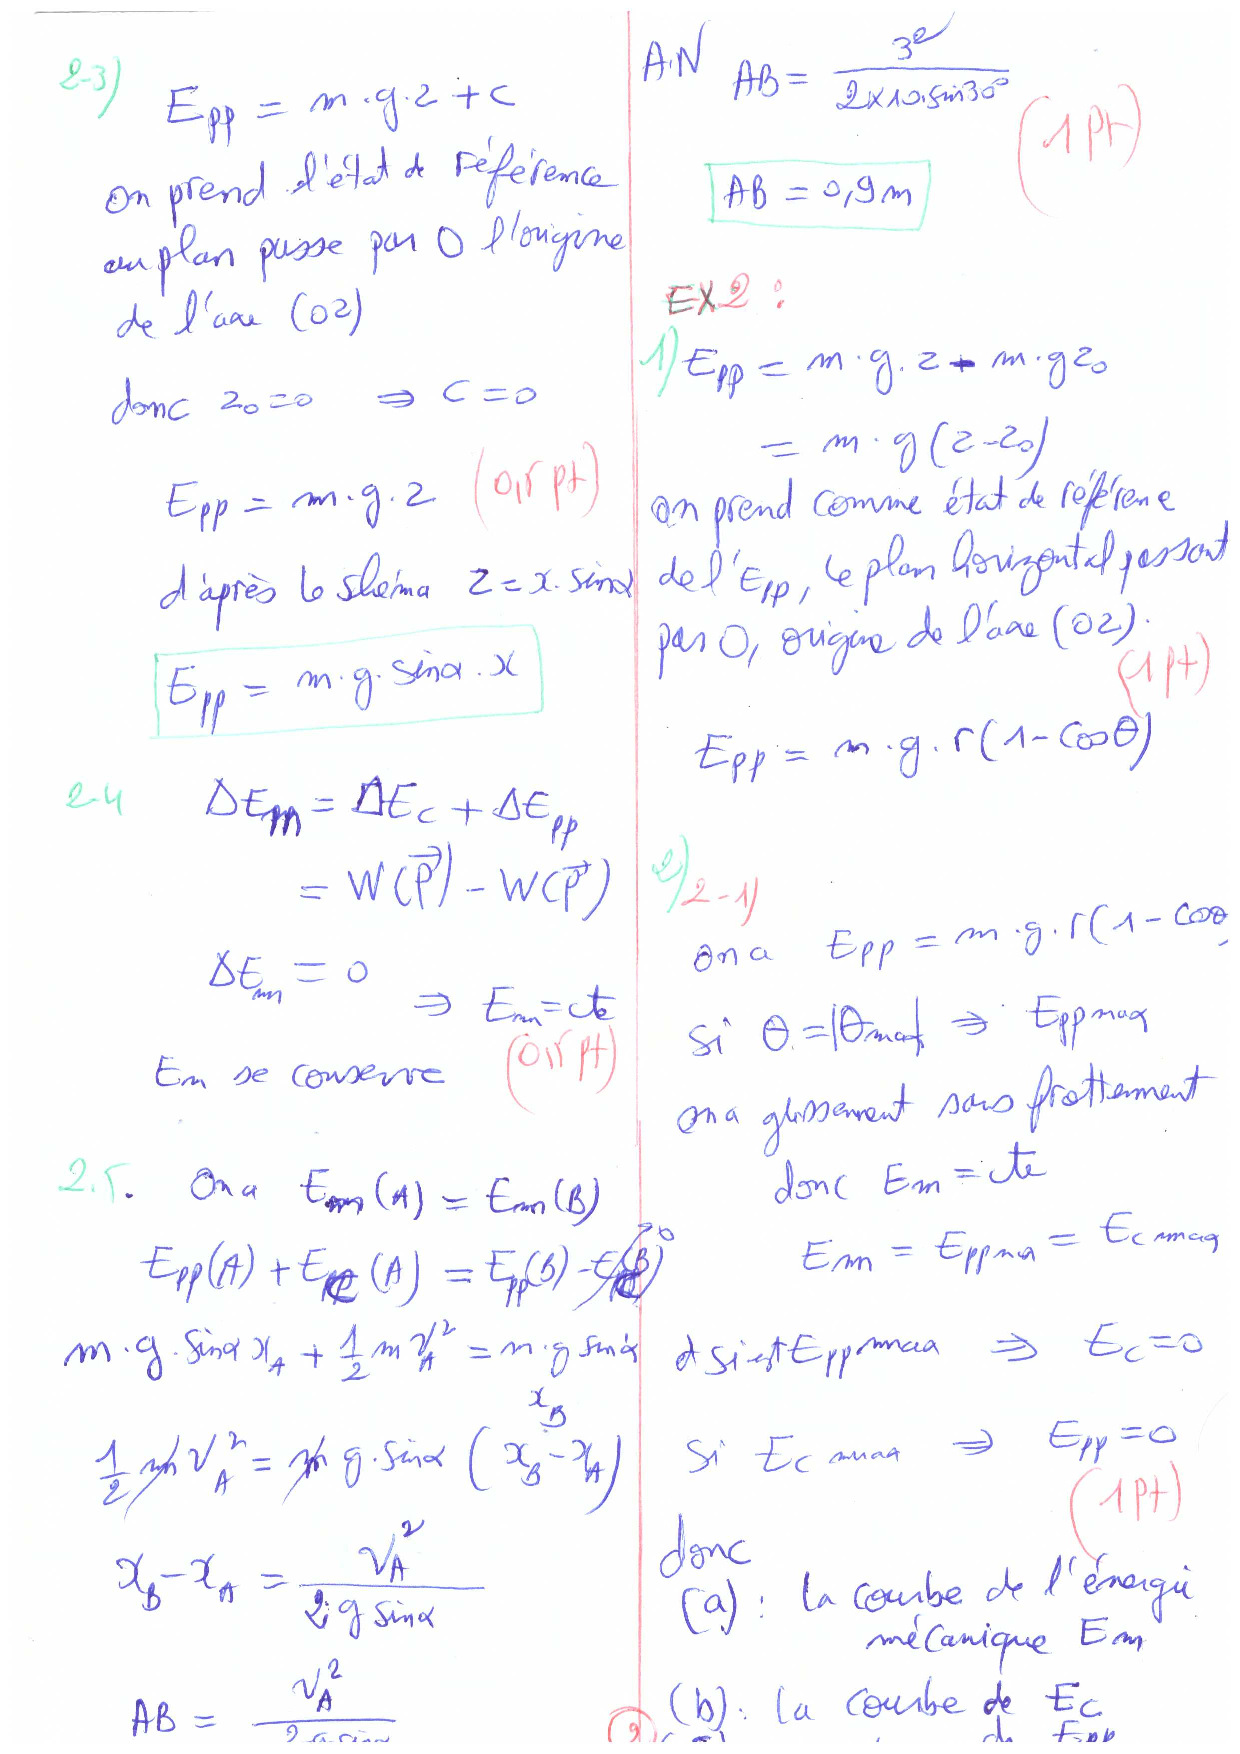 2-3)
Epp = m.g.z + c
on prend l'état de référence
au plan passe par O l'origine
de l'axe (oz)
donc z₀=0 ⇒ C=0
Epp = m.g.z (0,5 pt)
d'après le shéma z = x.sinα
Epp = m.g.sinα.x
2-4 ΔEm = ΔEc + ΔEpp
= W(P⃗) - W(P⃗)
ΔEm = 0
⇒ Em = cte
Em se conserve (0,5 pt)
2.5. On a Em(A) = Em(B)
Epp(A) + Ec(A) = Epp(B) - Ec(B) →0
m.g.sinα x_A + 1/2 m V_A² = m.g sinα
x_B
1/2 m V_A² = m g.sinα (x_B - x_A)
x_B - x_A = V_A² / 2.g sinα
AB = V_A² / 2.g sinα
A.N AB = 3² / 2×10.sin30°
(1 pt)
AB = 0,9 m
EX2 :
1) Epp = m.g.z - m.g z₀
= m.g (z - z₀)
on prend comme état de référene
de l'Epp, le plan horizontal passant
par O, origine de l'axe (oz).
(1 pt)
Epp = m.g.r(1 - cosθ)
2) 2-1)
on a Epp = m.g.r(1 - cosθ
si θ = |θmax| ⇒ Epp max
on a glissement sans frottement
donc Em = cte
Em = Epp ma = Ec max
si est Epp max ⇒ Ec = 0
si Ec max ⇒ Epp = 0
(1 pt)
donc
(a) : la courbe de l'énergie
mécanique Em
(b) : la courbe de Ec
de Epp